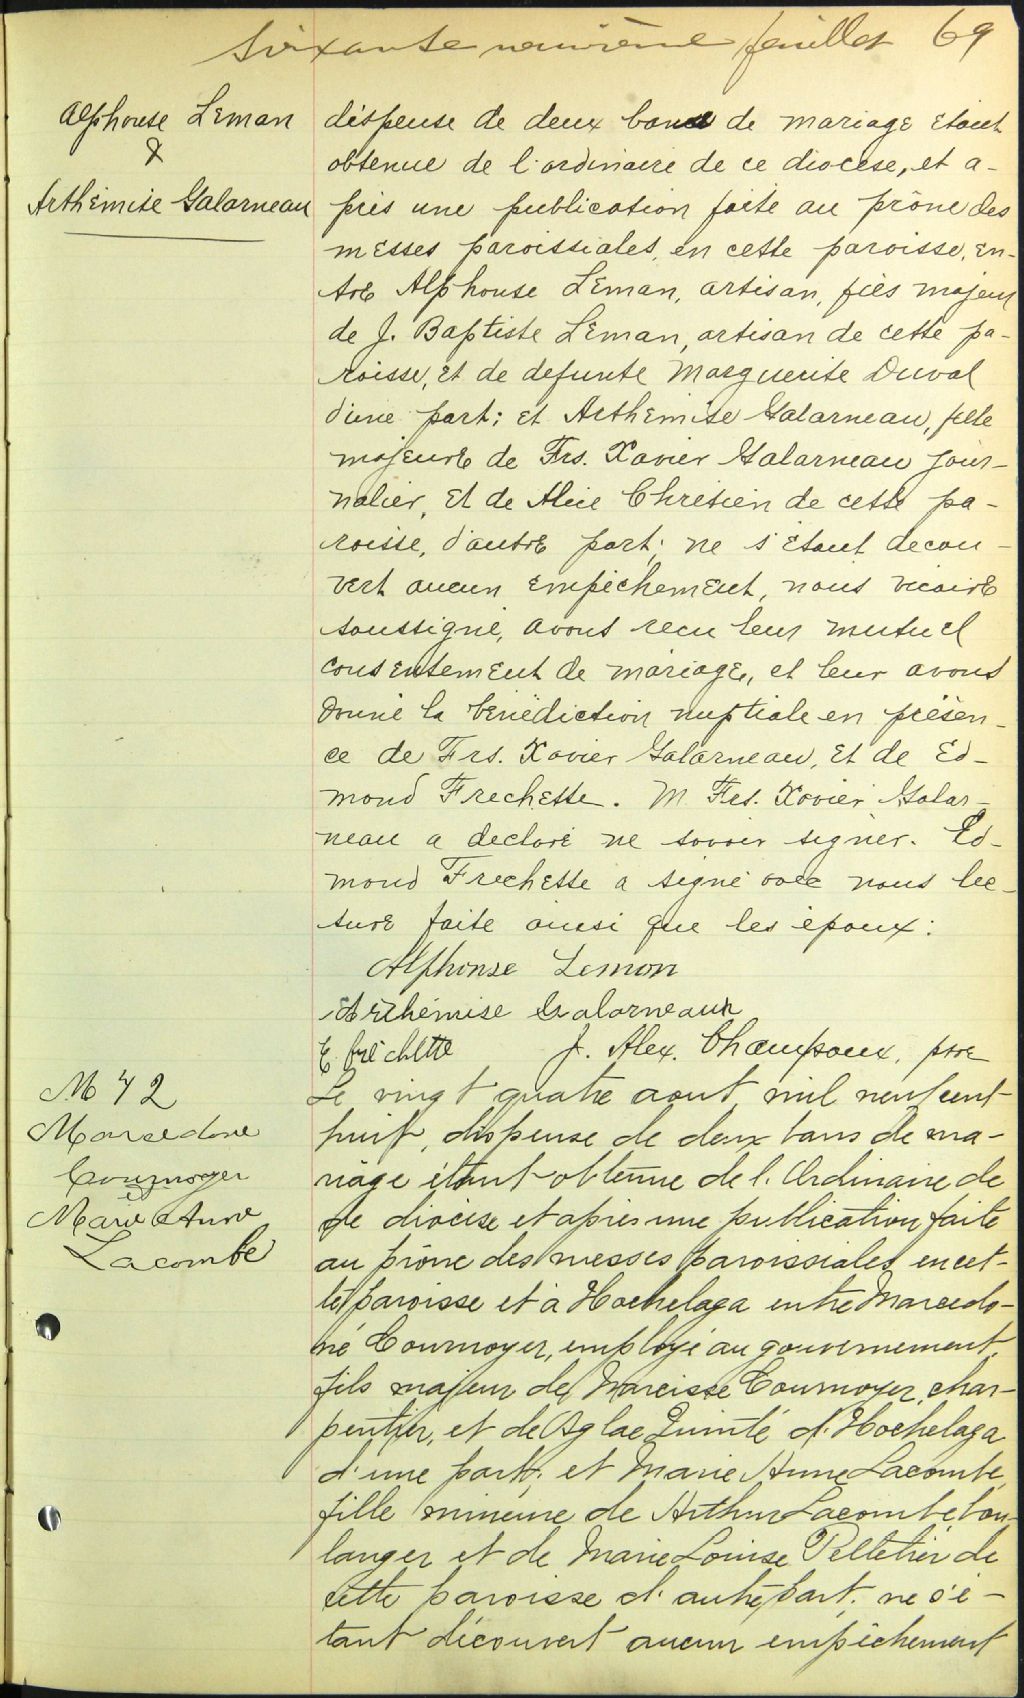 Soixante neuvième feuillet 69
Alphonse Leman
&
Arthémise Galarneau
dispense de deux bans de mariage étant
obtenue de l'ordinaire de ce diocèse, et a-
près une publication faite au prône des
messes paroissiales, en cette paroisse, en-
tre Alphonse Leman, artisan, fils majeur
de J. Baptiste Leman, artisan de cette pa-
roisse, et de defunte Marguerite Duval
d'une part; et Arthémise Galarneau, fille
majeure de Frs. Xavier Galarneau jour-
nalier, et de Alice Chrétien de cette pa-
roisse, d'autre part; ne s'étant decou-
vert aucun empêchement, nous vicaire
soussigné, avons recu leur mutuel
consentement de mariage, et leur avons
donné la bénédiction nuptiale en présen-
ce de Frs. Xavier Galarneau, et de Ed-
mond Frechette. M. Frs. Xavier Galar-
neau a declaré ne savoir signer. Ed-
mond Frechette a signé avec nous lec-
ture faite ainsi que les époux:
Alphonse Lemon
Arthémise Galarneau
E. fréchette J. Alex. Champoux, ptre
M 42
Marcedone
Cournoyer
&
Marie Anne
Lacombe
Le vingt quatre aout, mil neuf cent
huit, dispense de deux bans de ma-
riage étant obtenue de l'Ordinaire de
ce diocèse et après une publication faite
au prône des messes paroissiales en cet-
te paroisse et à Hochelaga entre Marcedo-
ne Cournoyer, employé au gouvernement,
fils majeur de Narcisse Cournoyer, char-
pentier, et de Aglae Quinté d'Hochelaga
d'une part; et Marie Anne Lacombe,
fille mineure de Arthur Lacombe bou-
langer et de Marie Louise Pelletier de
cette paroisse d'autre part; ne s'é-
tant découvert aucun empêchement